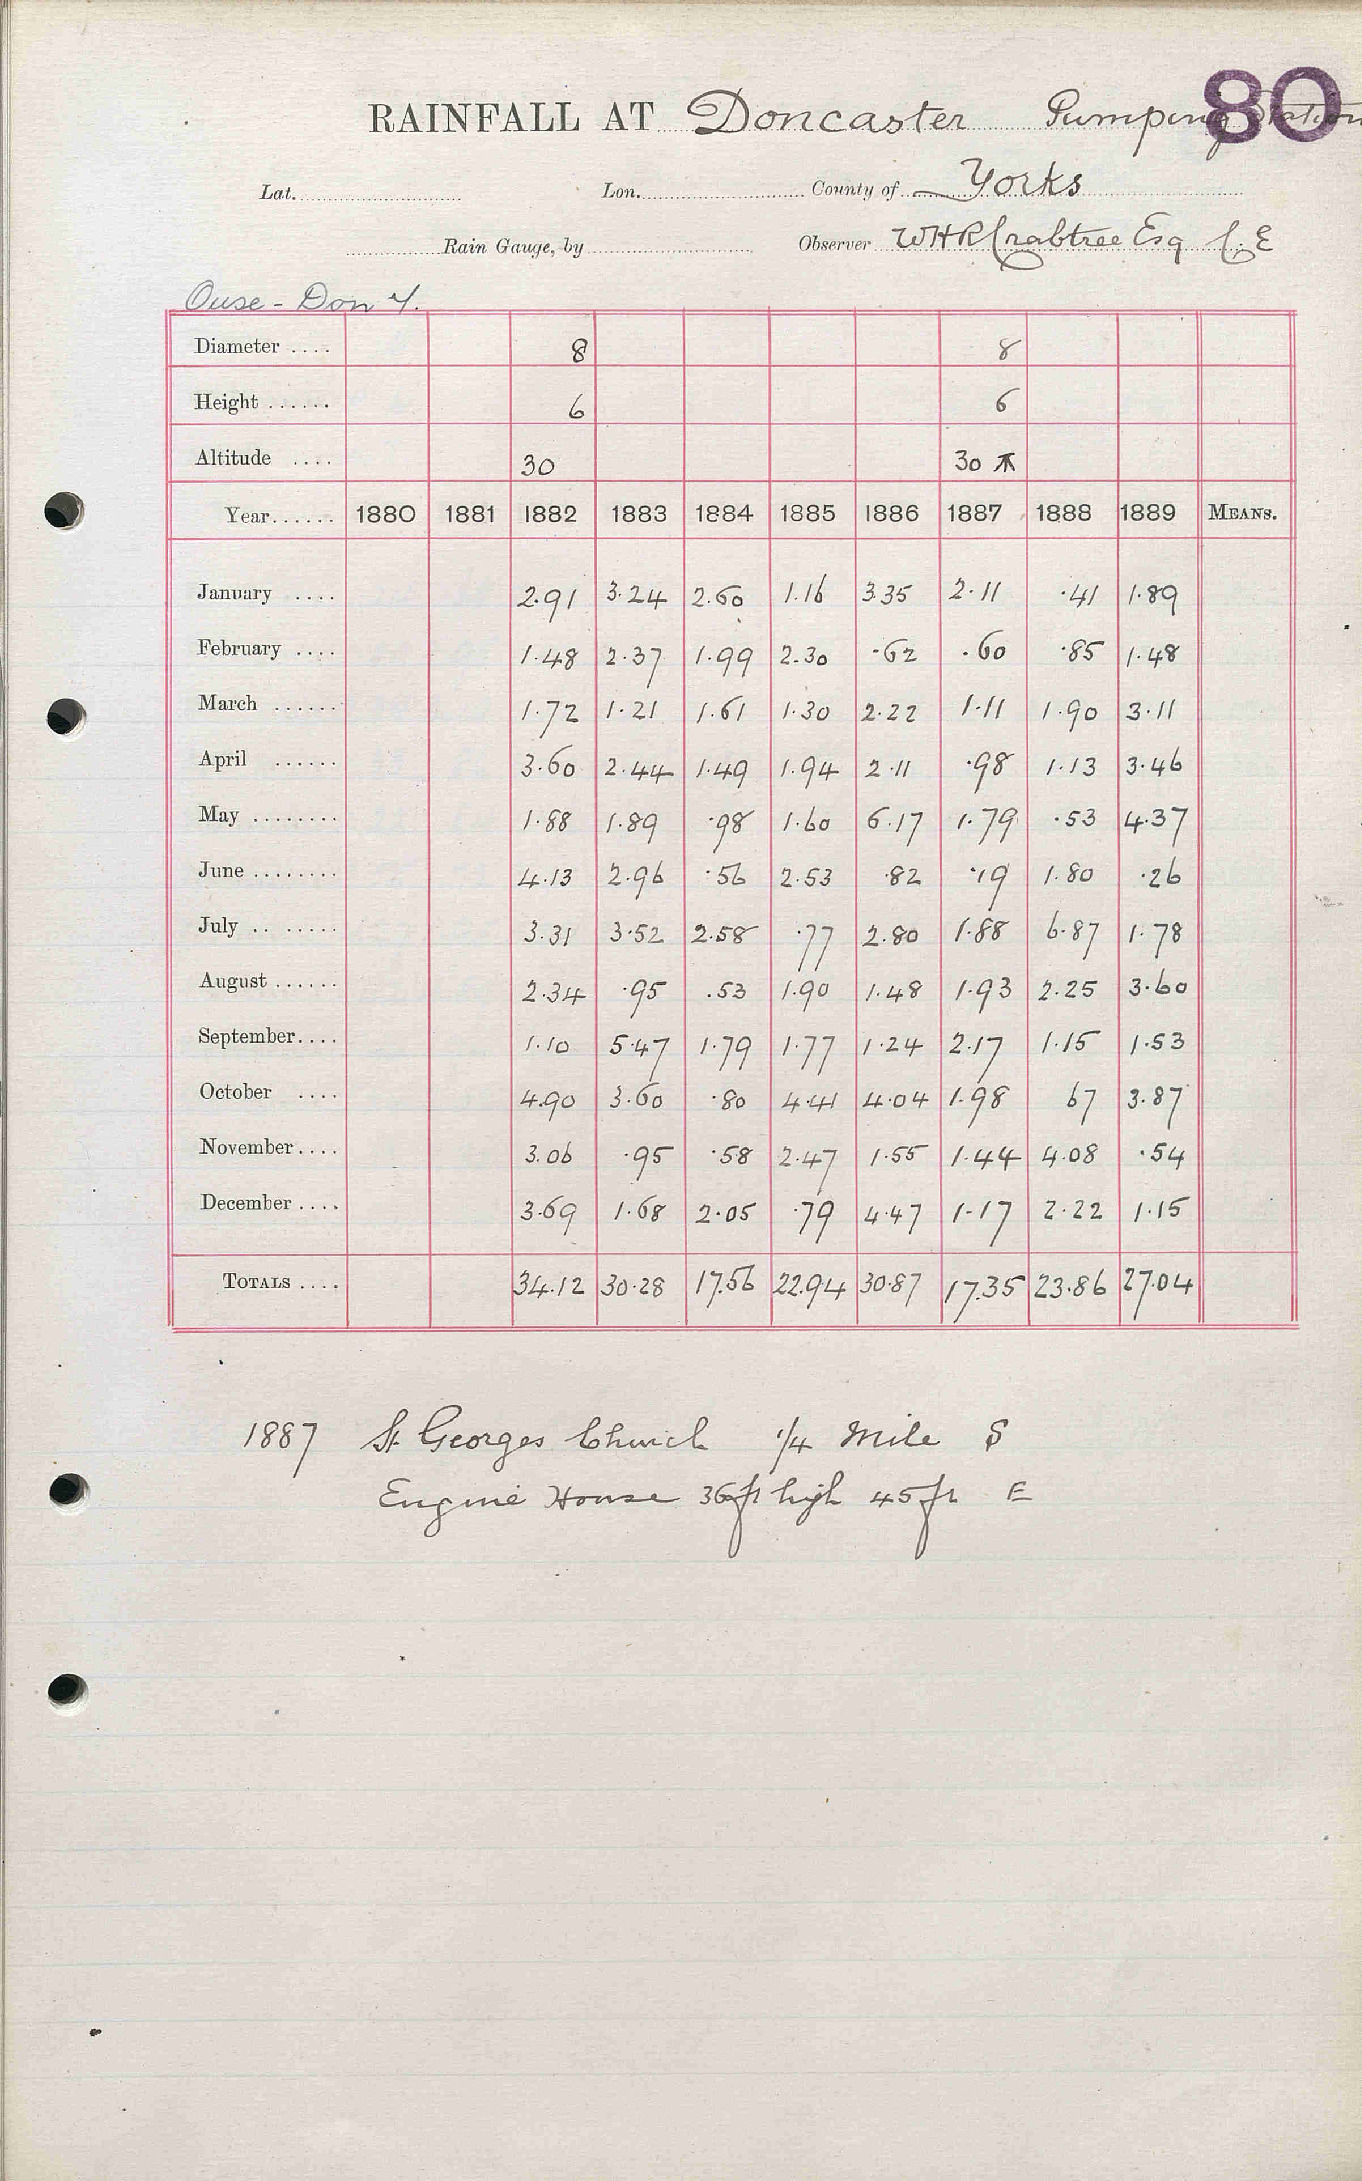 80
RAINFALL AT Doncaster Pumping Station
Lat. Lon. County of Yorks
Rain Gauge, by Observer WHR Crabtree Esq C.E
Ouse - Don 4.
Diameter .... 8 8
Height ...... 6 6
Altitude .... 30 30
Year...... 1880 1881 1882 1883 1884 1885 1886 1887 1888 1889 MEANS.
January .... 2.91 3.24 2.60 1.16 3.35 2.11 .41 1.89
February .... 1.48 2.37 1.99 2.30 .62 .60 .85 1.48
March ...... 1.72 1.21 1.61 1.30 2.22 1.11 1.90 3.11
April ...... 3.60 2.44 1.49 1.94 2.11 .98 1.13 3.46
May ........ 1.88 1.89 .98 1.60 6.17 1.79 .53 4.37
June ........ 4.13 2.96 .56 2.53 .82 .19 1.80 .26
July .. ..... 3.31 3.52 2.58 .77 2.80 1.88 6.87 1.78
August ...... 2.34 .95 .53 1.90 1.48 1.93 2.25 3.60
September.... 1.10 5.47 1.79 1.77 1.24 2.17 1.15 1.53
October .... 4.90 3.60 .80 4.41 4.04 1.98 67 3.87
November.... 3.06 .95 .58 2.47 1.55 1.44 4.08 .54
December .... 3.69 1.68 2.05 .79 4.47 1.17 2.22 1.15
TOTALS .... 34.12 30.28 17.56 22.94 30.87 17.35 23.86 27.04
1887 St Georges Church 1/4 Mile S
Engine House 36ft high 45ft E